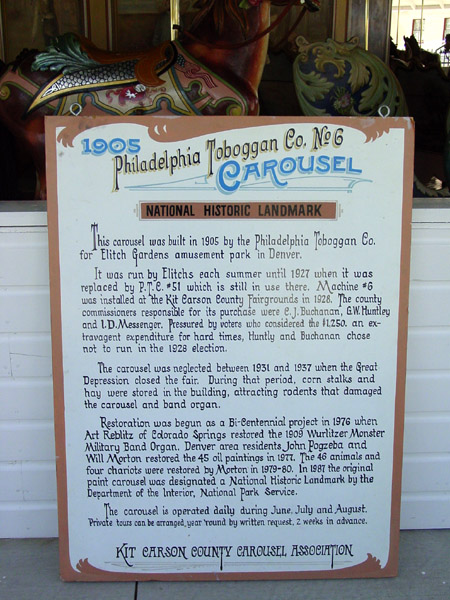 1905
Philadelphia Toboggan Co. No 6
CAROUSEL
NATIONAL HISTORIC LANDMARK
This carousel was built in 1905 by the Philadelphia Toboggan Co.
for Elitch Gardens amusement park in Denver.
It was run by Elitchs each summer until 1927 when it was
replaced by P.T.C. #51 which is still in use there. Machine #6
was installed at the Kit Carson County Fairgrounds in 1928. The county
commissioners responsible for its purchase were C. J. Buchanan, G.W. Huntley
and I.D. Messenger. Pressured by voters who considered the $1,250. an ex-
travagent expenditure for hard times, Huntly and Buchanan chose
not to run in the 1928 election.
The carousel was neglected between 1931 and 1937 when the Great
Depression closed the fair. During that period, corn stalks and
hay were stored in the building, attracting rodents that damaged
the carousel and band organ.
Restoration was begun as a Bi-Centennial project in 1976 when
Art Reblitz of Colorado Springs restored the 1909 Wurlitzer Monster
Military Band Organ. Denver area residents John Pogzeba and
Will Morton restored the 45 oil paintings in 1977. The 46 animals and
four chariots were restored by Morton in 1979-80. In 1987 the original
paint carousel was designated a National Historic Landmark by the
Department of the Interior, National Park Service.
The carousel is operated daily during June, July and August.
Private tours can be arranged, year 'round by written request, 2 weeks in advance.
KIT CARSON COUNTY CAROUSEL ASSOCIATION